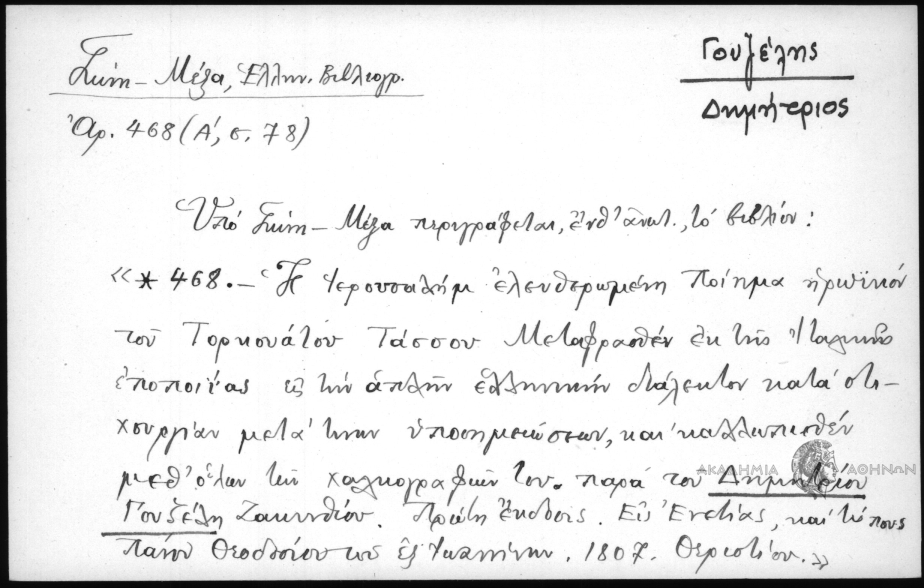 Γουζέλης
Δημήτριος
Γκίνη – Μέξα, Ἑλλην. Βιβλιογρ.
Ἀρ. 468 (Α΄, σ. 78)
Ὑπό Γκίνη – Μέξα περιγράφεται, ἔνθ' ἀνωτ., τό βιβλίον:
«* 468. – Ἡ Ἱερουσαλήμ ἐλευθερωμένη Ποίημα ἡρωϊκόν
τοῦ Τορκουάτου Τάσσου Μεταφρασθέν ἐκ τῆς Ἰταλικῆς
ἐποποιΐας εἰς τήν ἁπλῆν ἑλληνικήν διάλεκτον κατά στι-
χουργίαν μετά τινων ὑποσημειώσεων, καί καλλωπισθέν
μεθ' ὅλων τῶν χαλκογραφιῶν του. παρά του Δημητρίου
Γουζέλη Ζακυνθίου. Πρώτη ἔκδοσις. Ἐν Ἐνετίᾳ, καί τύποις
Πάνου Θεοδοσίου τοῦ ἐξ Ἰωαννίνων. 1807. Θεριστίου.»
ΑΚΑΔΗΜΙΑ ΑΘΗΝΩΝ